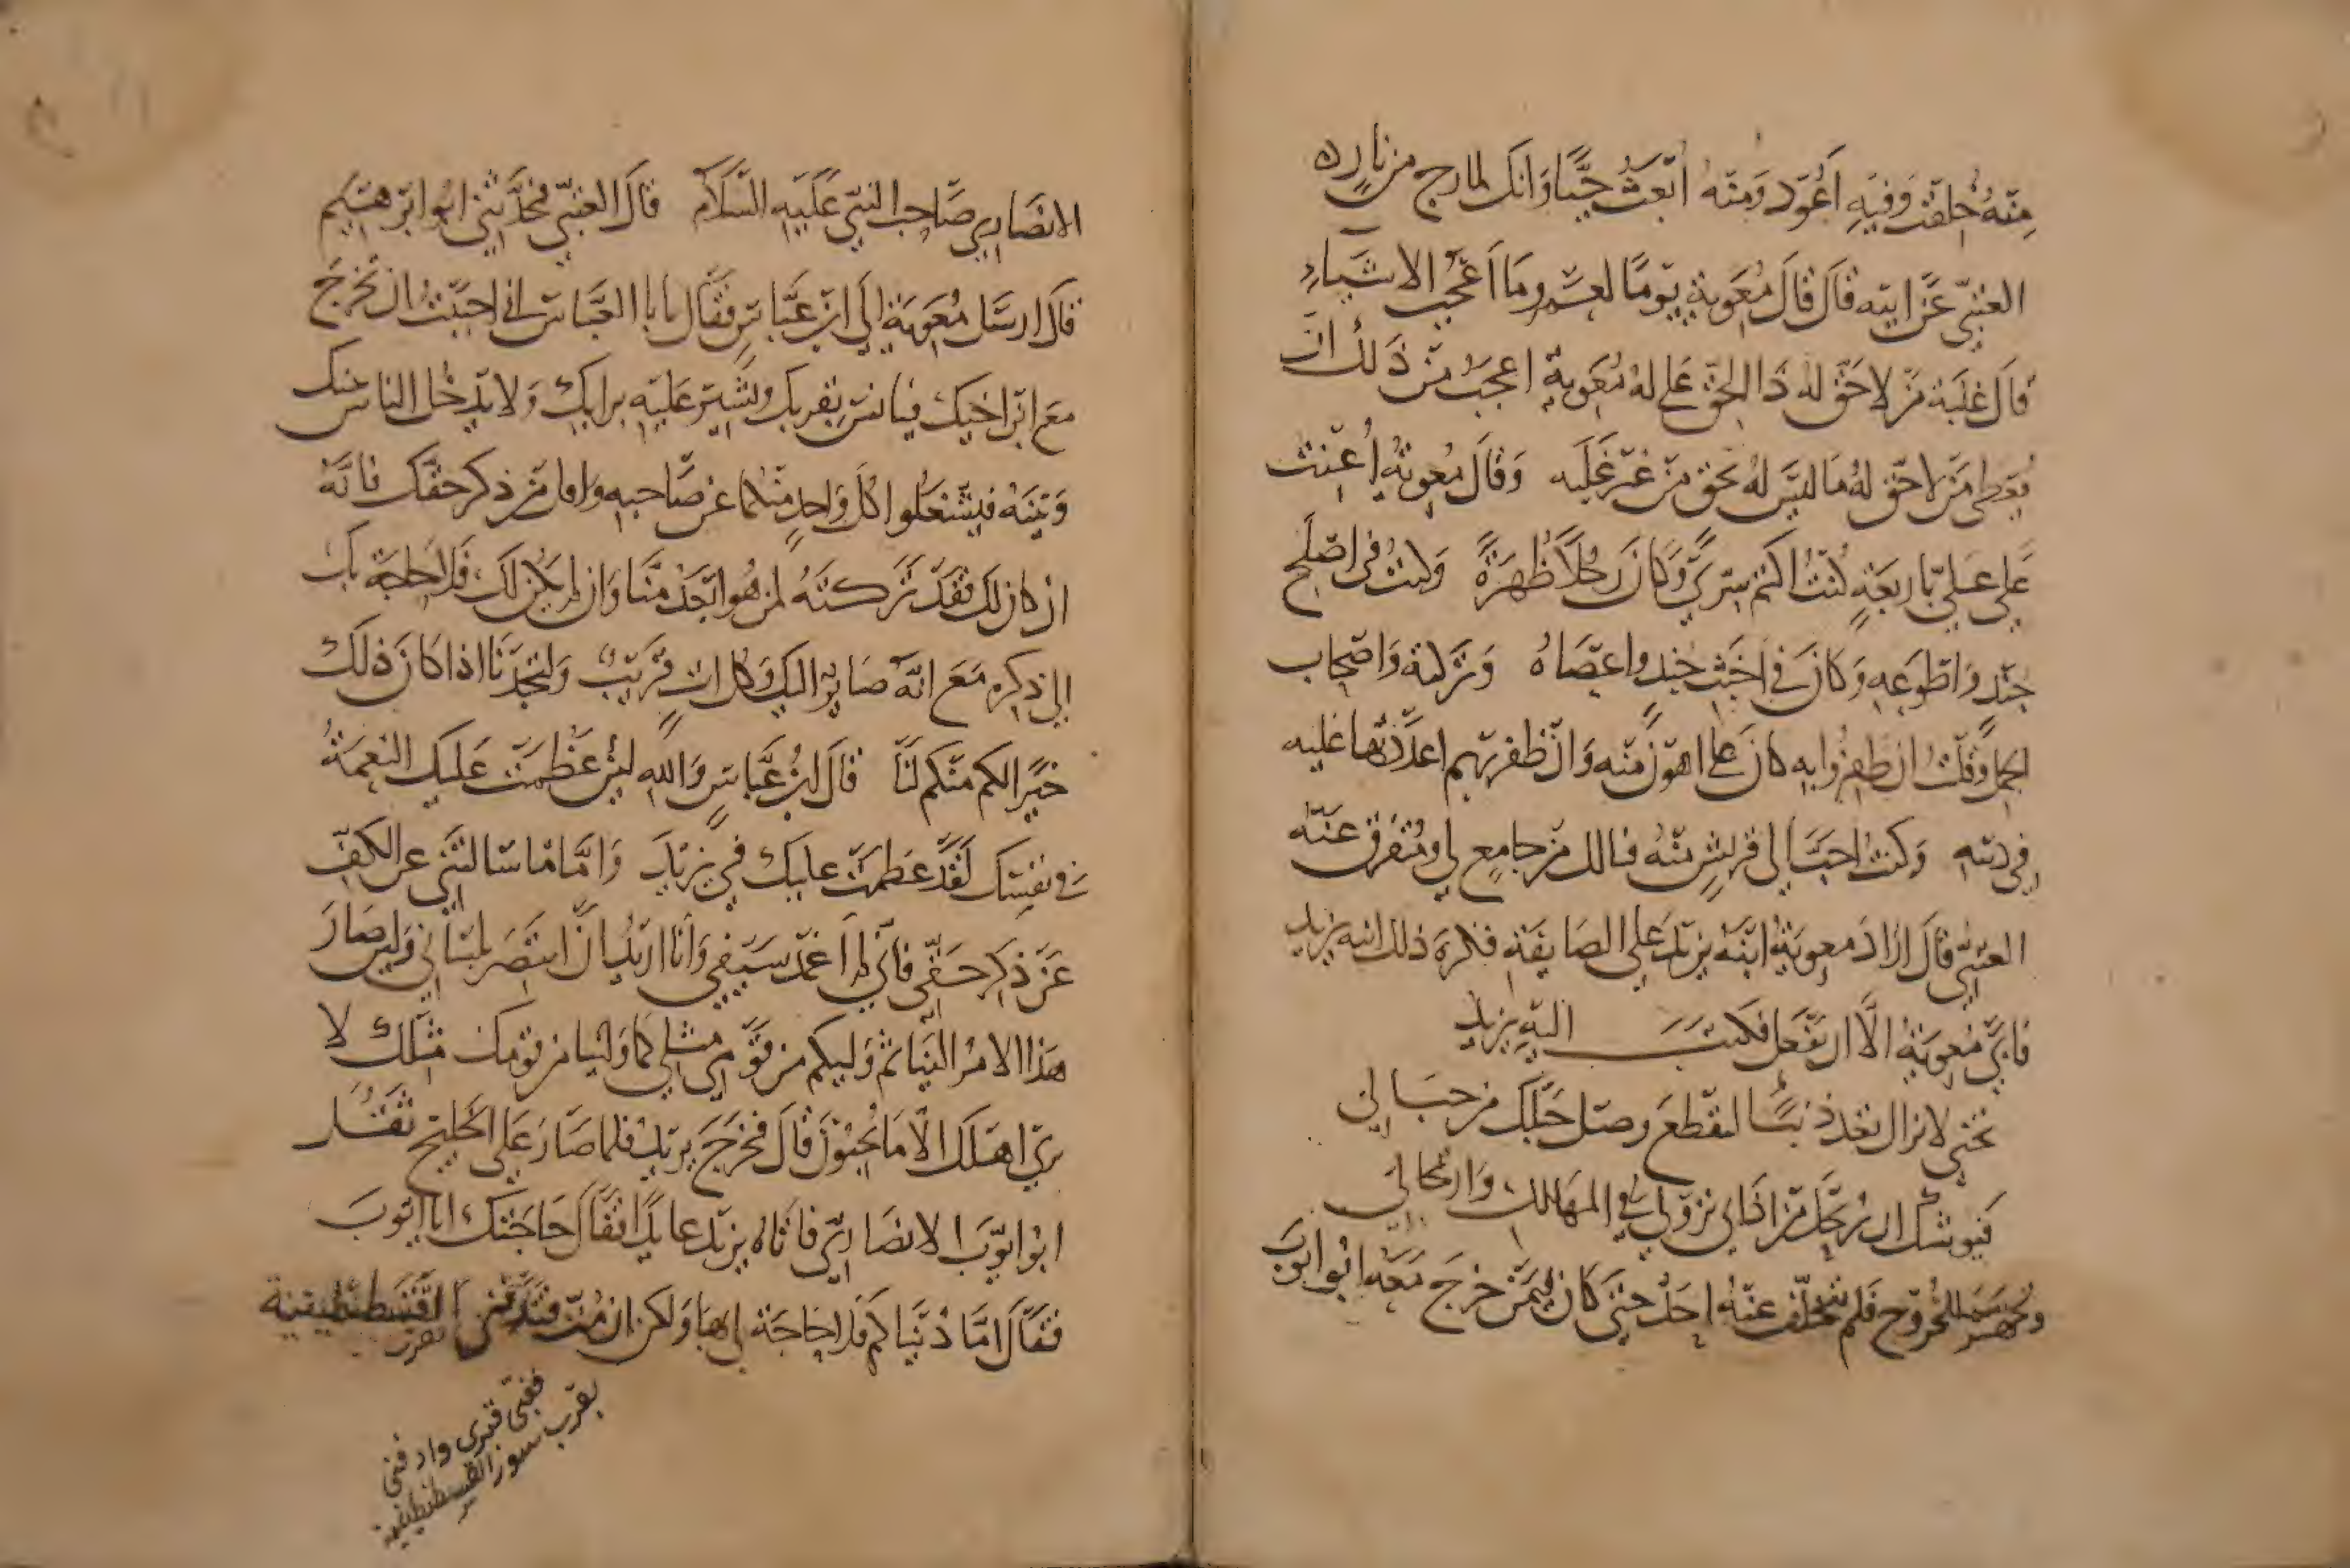 منه خلقت وفيه اعود ومنه ابعث حيا وانك لمارج من نار ه
العتبي عن ابيه قال قال معوية يوما لعمرو ما اعجب الاشياء
قال غلبة من لا حق له ذا الحق على له معوية اعجب من ذلك ان
يعطى من لا حق له ما ليس له بحق من غير غلبه وقال معوية اعنت
على علي باربعة كنت اكتم سري وكان رجلا ظهرة وكنت في اصلح
جند واطوعه وكان في اخبث جند واعصاه وتركته واصحاب
الجمل وقلت ان ظفروا به كان علي اهون منه وان ظفر بهم اعددتها عليه
في دينه وكنت احب الى قريش منه فيالك من جامع لي ومتفرق عنه
العتبي قال اراد معوية ابنه يزيد على الصايفة فكره ذلك ابنه يزيد
فابى معوية الا ان يفعل فكتب اليه يزيد
نجنى لا تزال تعد ذنبا لتقطع وصل حبلك من حبالي
فيوشك ان يريحك من اذاي نزولي في المهالك وارتحالي
وتجهز للخروج فلم يتخلف عنه احد حتى كان فيمن خرج معه ابو ايوب
الانصاري صاحب النبي عليه السلام قال العتبي فحدثني ابو ابرهيم
قال ارسل معوية الى ابن عباس فقال يابا العباس اني احببت ان تخرج
مع ابن اخيك فيانس بقربك وتشير عليه برايك ولا يدخل الناس بينك
وبينه فيشغلوا كل واحد منكما عن صاحبه واقل من ذكر حقك فانه
ان كان لك فقد تركته لمن هو ابعد منا وان لم يكن لك فلا حاجة بك
الى ذكره مع انه صاير اليك وكل ات قريب ولتجدنا اذا كان ذلك
خيرا لكم منكم لنا قال ابن عباس والله لئن عظمت عليك النعمة
في نفسك لقد عظمت عليك في يزيد واما ما سالتني عن الكف
عن ذكر حقي فاني لم اغمد سيفي وانا اريد ان انتصر بلساني ولين صار
هذا الامر الينا ثم وليكم من قومي مثلي كما ولينا من قومك مثلك لا
يرى اهلك الا ما يحبون قال فخرج يزيد فلما صار على الخليج ثقل
ابو ايوب الانصاري فاتاه يزيد عايدا فقال حاجتك ابا ايوب
فقال اما دنياكم فلا حاجة لي بها ولكن ان مت القسطنطينية
قبري وادفني
بقرب سور القسطنطينية